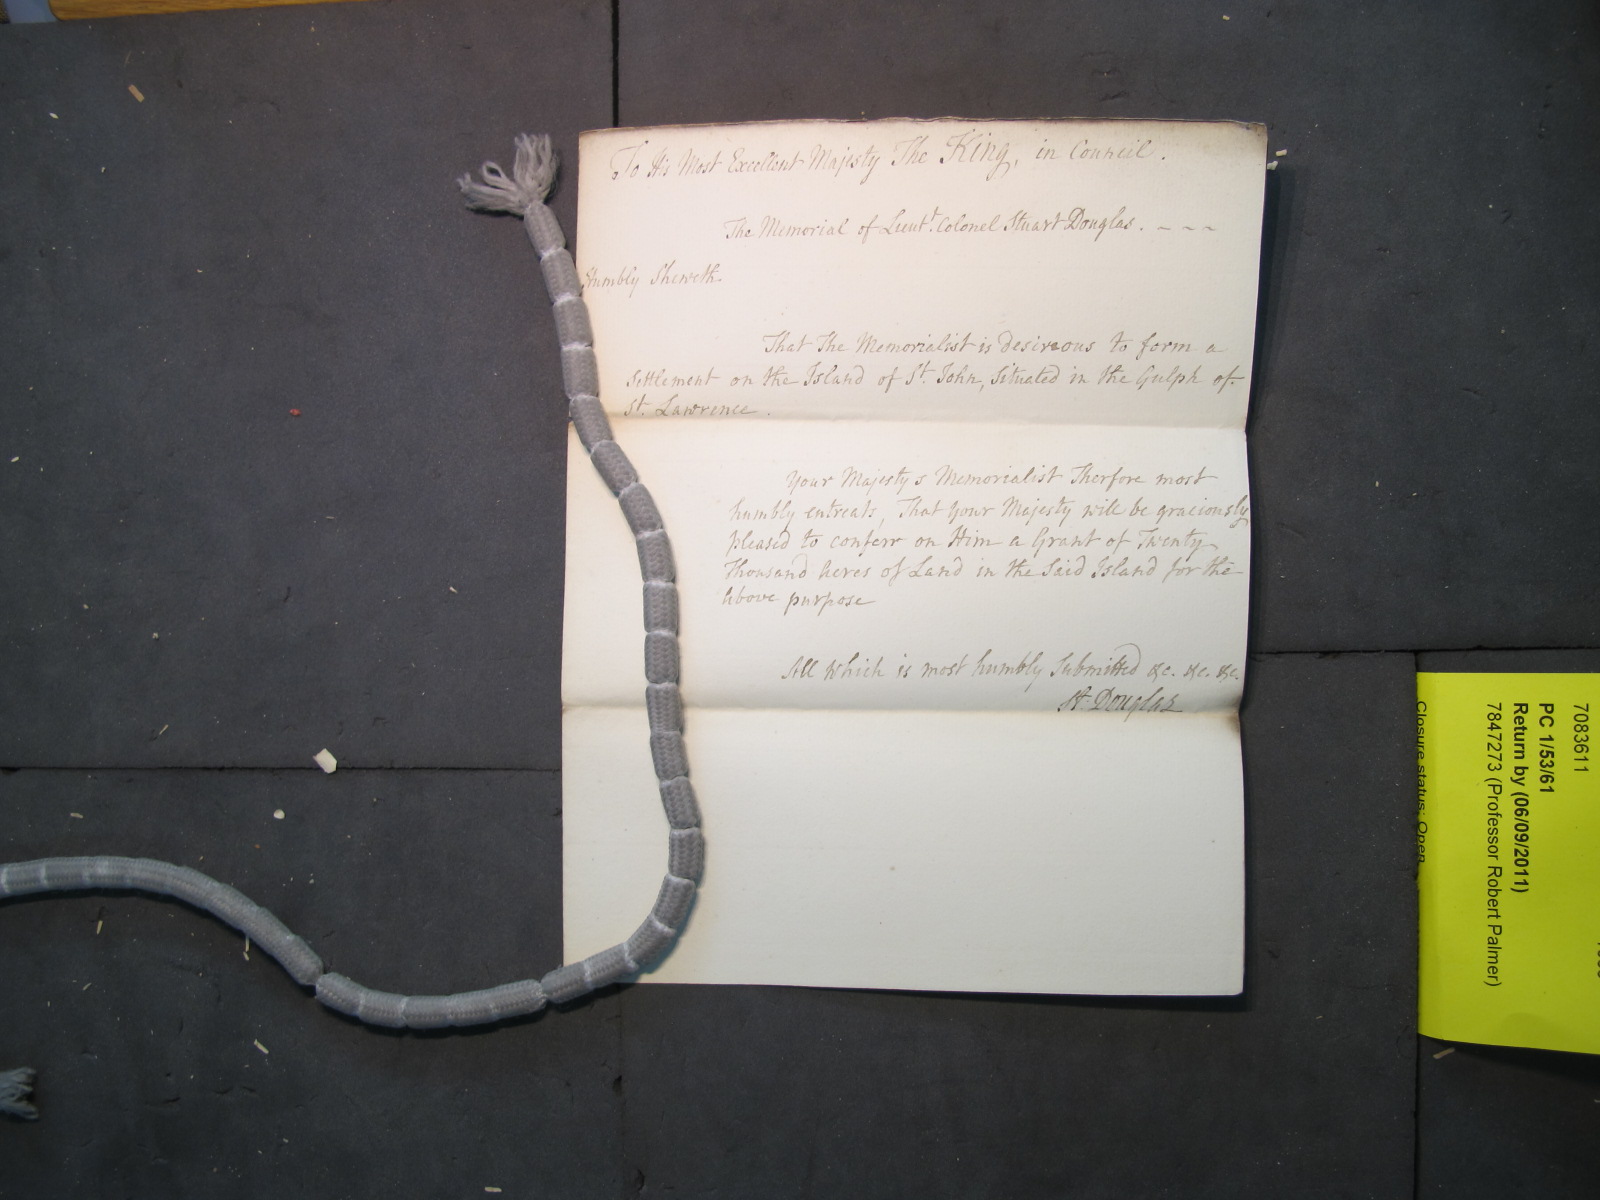 To His Most Excellent Majesty The King, in Council.
The Memorial of Lieut.t Colonel Stuart Douglas. - - -
Humbly Sheweth.
That The Memorialist is desireous to form a
Settlement on the Island of St. John, Situated in the Gulph of
St. Lawrence.
Your Majesty's Memorialist Therfore most
humbly entreats, That Your Majesty will be graciously
pleased to conferr on Him a Grant of Twenty
Thousand Acres of Land in the Said Island for the
Above purpose
All Which is most humbly Submitted &c. &c. &c.
St. Douglas
7083611
PC 1/53/61
Return by (06/09/2011)
7847273 (Professor Robert Palmer)
Closure status: Open